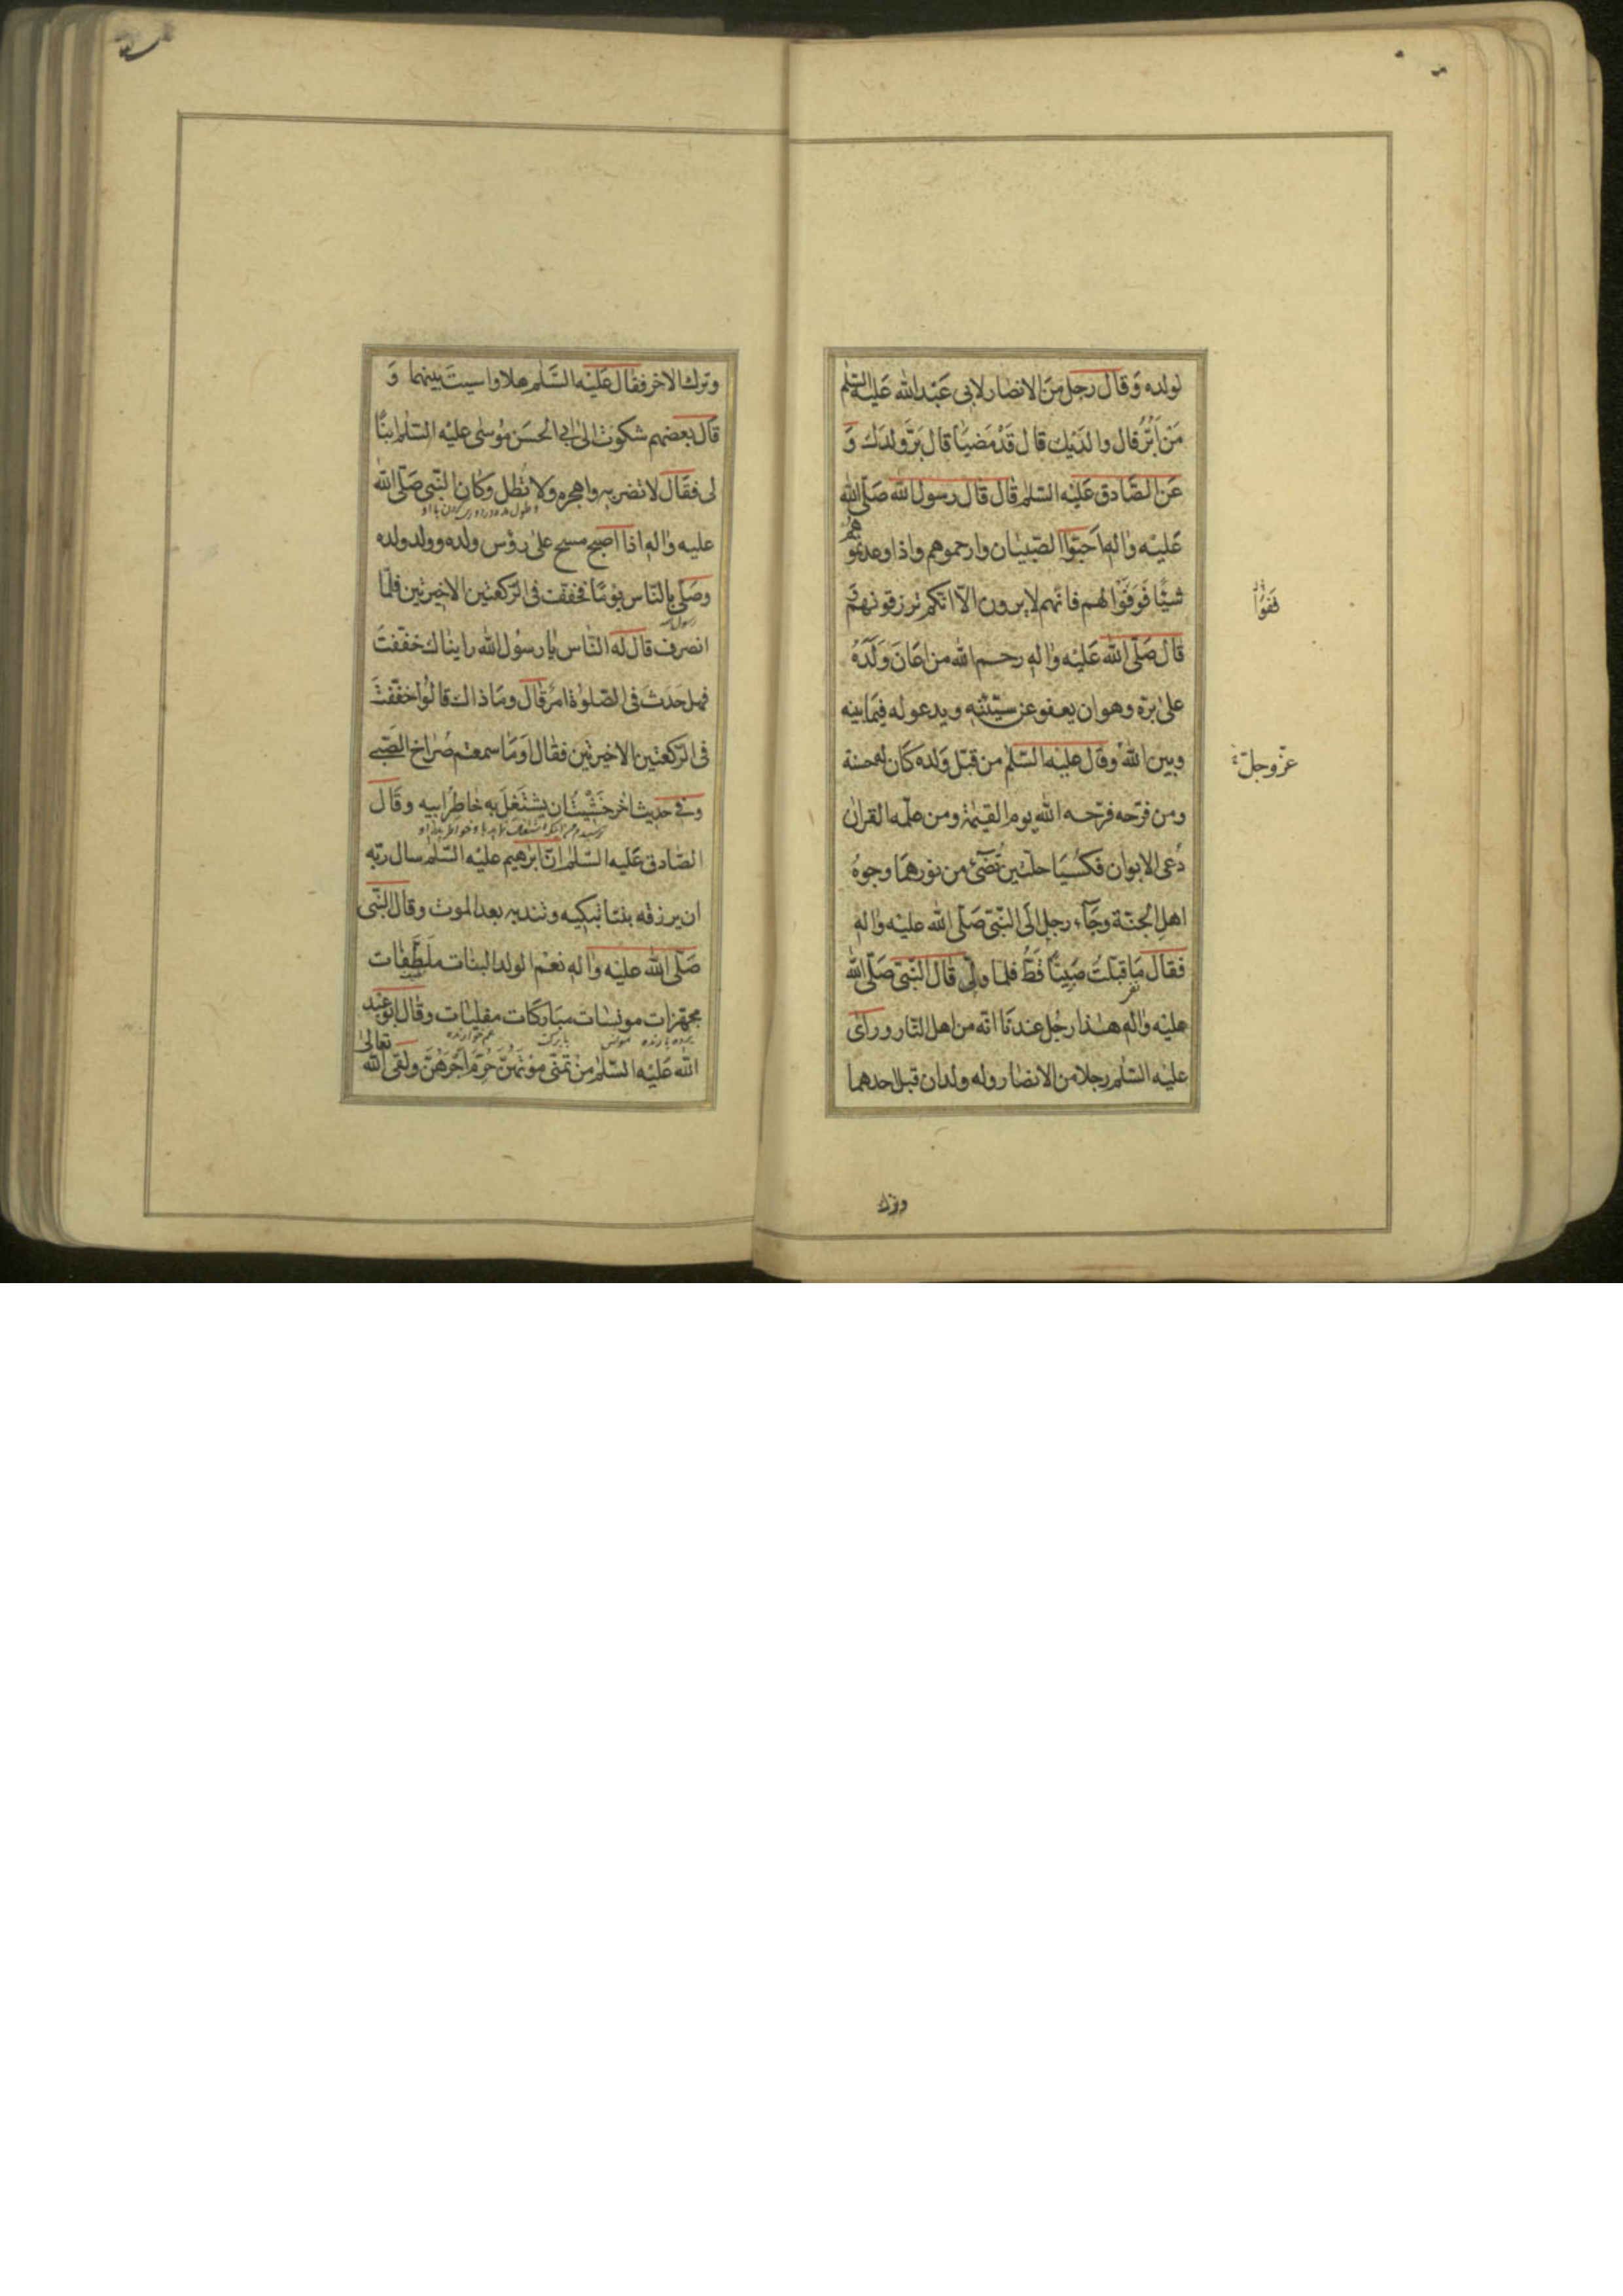 لولده وَقالَ رجل منَ الانصار لابى عَبْد الله عَليه السّلم
مَنْ اَبَرُّ قال والدَيْك قال قَدْ مَضيَا قال بَرَّ ولدَك وَ
عَن الصَّادق عَليْه السّلم قال قال رسول الله صَلّى الله
عَليْه واله اَحبّوا الصّبيان وارحموهم واذا وعدتموهم
شيئًا فَوَفّوا لهم فانهم لا يرون الّا انكم ترزقونهم
قالَ صَلّى الله عَليْه واله رحم الله من اعَانَ وَلَدَهُ
على برّه وهو ان يعفو عن سيّئته ويدعو له فيمَا بينه
وبين الله وقال عليه السّلم من قبّل وَلده كَان له حسنة
ومن فرّحه فرّحه الله يوم القيمة ومن علّمه القران
دُعى الابوان فكُسيَا حلّتين تُضىٓء من نورهمَا وجوهُ
اهلِ الجَنّة وَجَآء رجل الَى النّبىّ صَلّى الله عليْه واله
فقال مَا قبّلتُ صَبِيًّا قَطُّ فلما ولّى قال النّبىّ صَلّى الله
عليْه واله هذا رجُل عندنَا انّه من اهل النّار ورَاى
عليْه السّلم رجلا من الانصار وله ولدان قبل احدهما
فَفُوا
عزّ وجلّ
وترك
وترك الاخر فقال عَليْه السَّلم هلا واسيتَ بينهما وَ
قالَ بعضهم شكوت الى ابى الحسَن مُوسٰى عليْه السّلم ابنًا
لى فقَال لا تضربه واهجره ولا تُطل وَكان النّبى صَلّى الله
عليه واله اذا اصبح مسح على رؤس ولده وولد ولده
وصَلّى بالنّاس يومًا فخفّفت فى الرّكعتين الاخيرتين فلمّا
انصرف قال له النّاس يا رسُول الله رايناك خفّفتَ
فهل حَدَث فى الصّلوة امرٌ قال ومَا ذاك قالُوا خفّفتَ
فى الرّكعتين الاخيرتين فقال اوَمَا سمعتم صُرَاخ الصّبى
وفى حديث اخر خَشيْتُ ان يشتَغلَ به خاطِر ابيه وقَال
الصّادق عَليه السّلم انّ ابرهيم عليْه السّلم سال ربّه
ان يرزقه بنتا تبكيه وتندبه بعد الموت وقال النّبى
صَلّى الله عليْه واله نعْم الولد البنات ملَطَّفات
مجهّزات مونسات مباركَات مفليات وقَال ابو عبد
الله عَليْه السّلم منْ تمنّى موْتَهنّ حُرِمَ اَجْرَهُنّ ولقى الله
تعالى